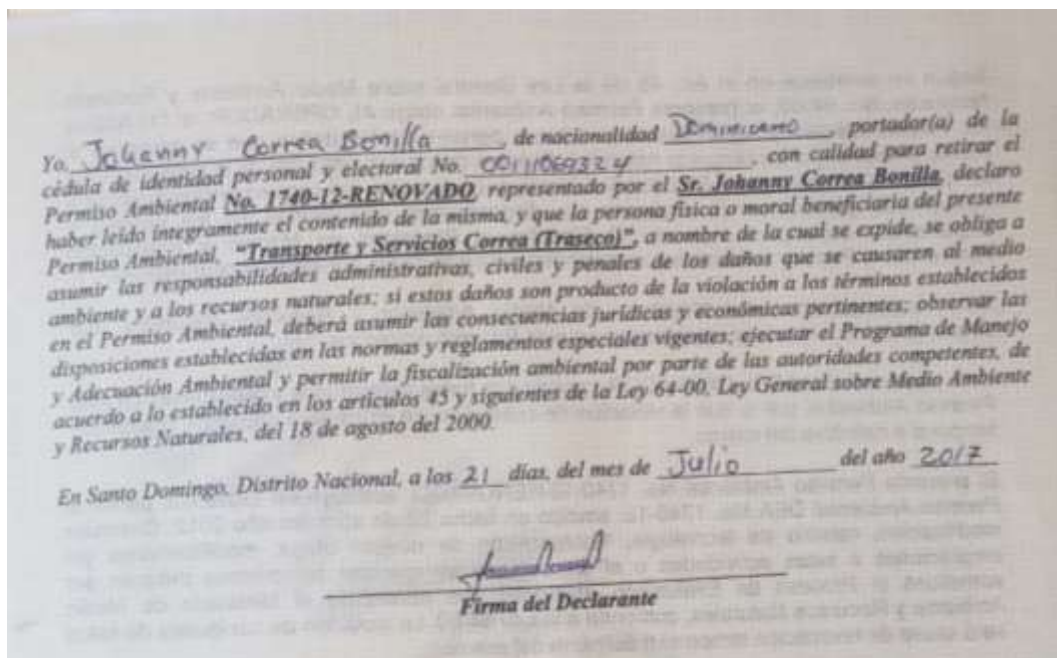 Yo, Johanny Correa Bonilla, de nacionalidad Dominicano, portador(a) de la
cédula de identidad personal y electoral No. 00111069324, con calidad para retirar el
Permiso Ambiental No. 1740-12-RENOVADO, representado por el Sr. Johanny Correa Bonilla, declaro
haber leído íntegramente el contenido de la misma, y que la persona física o moral beneficiaria del presente
Permiso Ambiental, "Transporte y Servicios Correa (Traseco)", a nombre de la cual se expide, se obliga a
asumir las responsabilidades administrativas, civiles y penales de los daños que se causaren al medio
ambiente y a los recursos naturales; si estos daños son producto de la violación a los términos establecidos
en el Permiso Ambiental, deberá asumir las consecuencias jurídicas y económicas pertinentes; observar las
disposiciones establecidas en las normas y reglamentos especiales vigentes; ejecutar el Programa de Manejo
y Adecuación Ambiental y permitir la fiscalización ambiental por parte de las autoridades competentes, de
acuerdo a lo establecido en los artículos 45 y siguientes de la Ley 64-00, Ley General sobre Medio Ambiente
y Recursos Naturales, del 18 de agosto del 2000.
En Santo Domingo, Distrito Nacional, a los 21 días, del mes de Julio del año 2017
Firma del Declarante